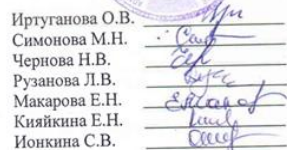 Иртуганова О.В.
Симонова М.Н.
Чернова Н.В.
Рузанова Л.В.
Макарова Е.Н.
Кияйкина Е.Н.
Ионкина С.В.